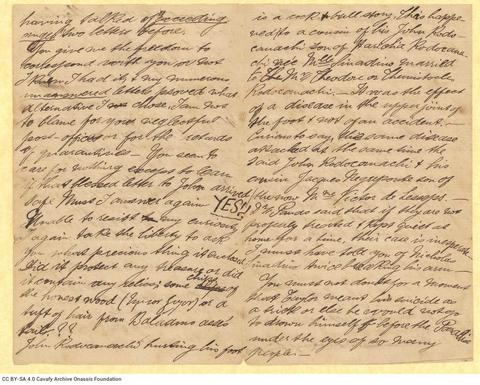 having talked of
two letters before.
You give me the freedom to
correspond with you or not
I know I had it, & my numerous
unanswered letters proved what
alternative I chose. I am not
to blame for your neglectful
post-offices or for the retards
of quarantines — You seem to
care for nothing except to learn
if that letter to John arrived
safe. Must I answer again YES!!
Unable to resist my curiosity
I again take the liberty to ask
you what precious thing it enclosed.
Did it protect any treasure or did
it contain any relics; some chips of
the honest wood ( or ) or a
tuft of hair from Balaams ass's
tail??
John Rodocanachi's hurting his foot
is a cock & bull story. This happe-
ned to a cousin of his John Rodo-
canachi son of Rodocana-
chi née Mlle married
to Mr Theodore or Themistocles
Rodocanachi. — It was the effect
of a disease in the upper joint of
the foot & not of an accident. —
Curious to say, this same disease
attacked at the same time the
said John Rodocanachi & his
cousin Jacques son of
the now Mme Victor de Lesseps. —
Dr said that if they are not
properly treated & kept quiet at
home for a time, their case is
I must have told you of Nicholas
twice his arm —
You must not doubt for a moment
that Taylor meant his suicide as
a trick or else he would not go
to drown himself before the
under the eyes of so many
people —
CC BY-SA 4.0 Cavafy Archive Onassis Foundation